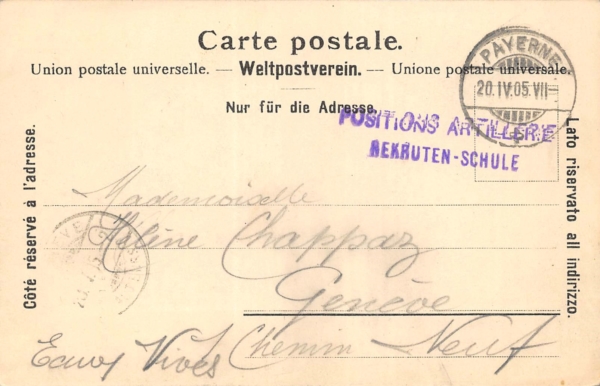 Carte postale.
Union postale universelle. — Weltpostverein. — Unione postale universale.
Nur für die Adresse.
PAYERNE
20.IV.05.VII
POSITIONS ARTILLERIE
REKRUTEN-SCHULE
Côté réservé à l'adresse.
Lato riservato all indirizzo.
Mademoiselle
Hélène Chappaz
Genève
Eaux Vives Chemin Neuf